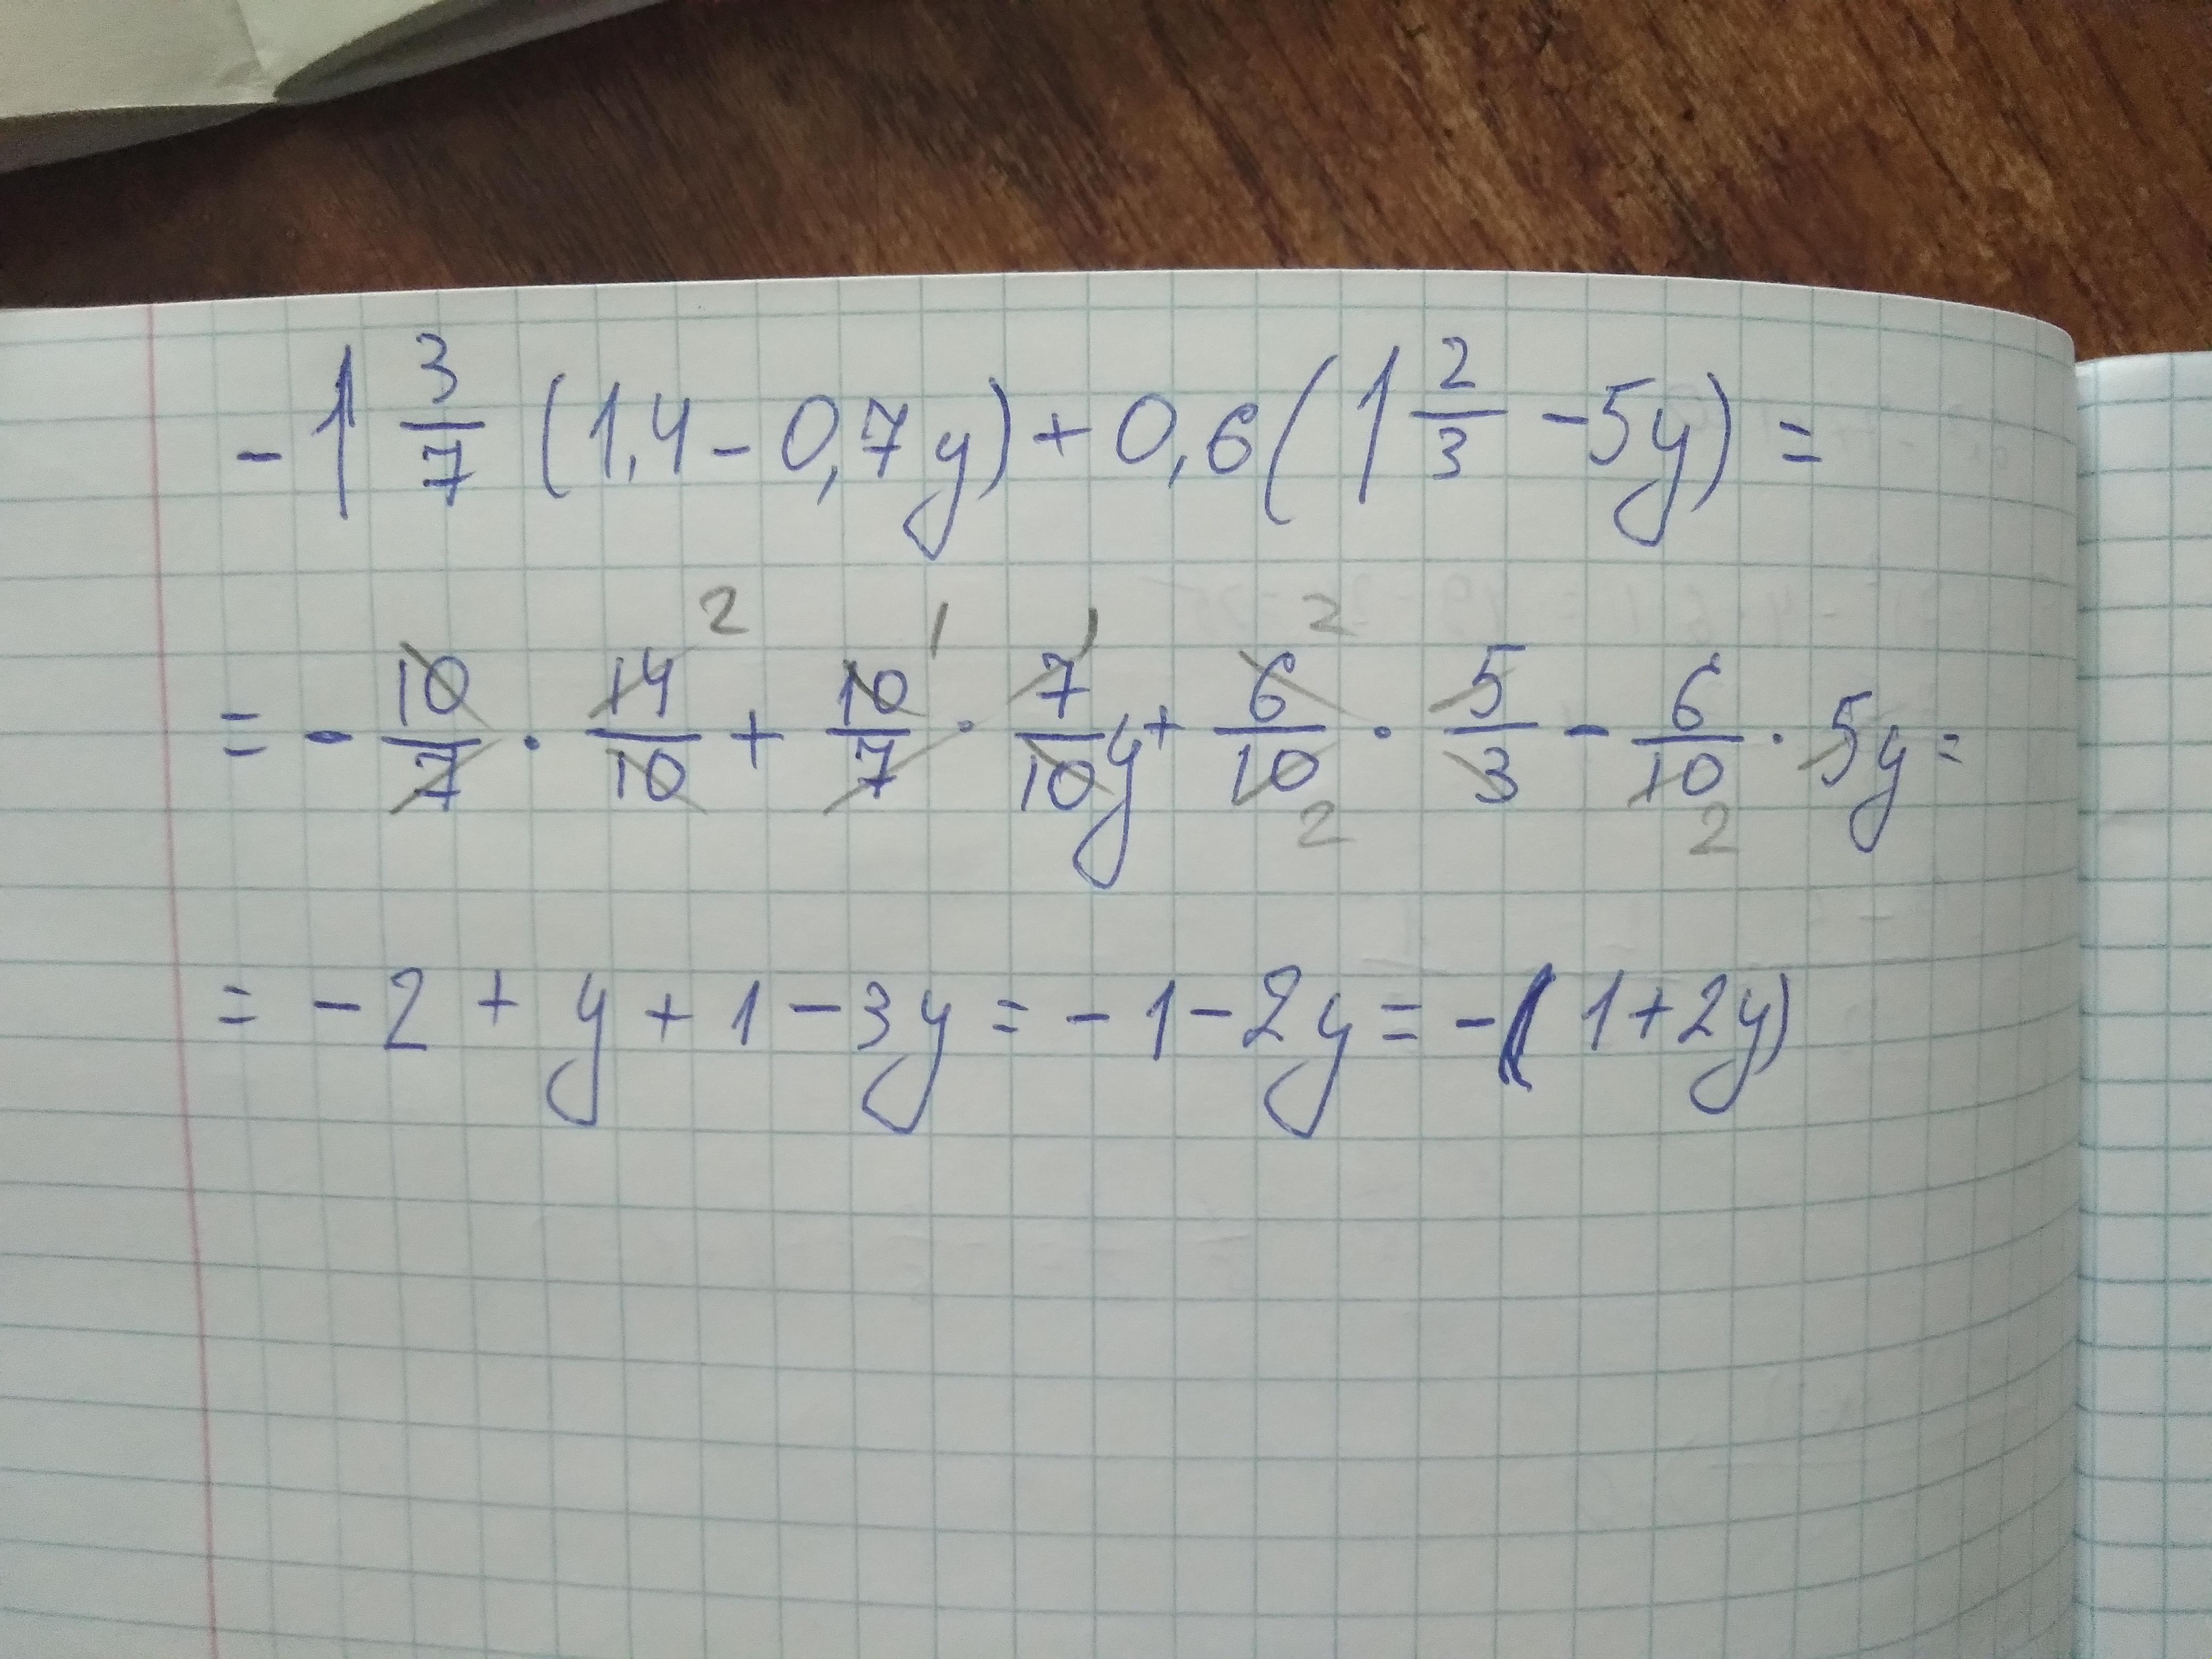 -1 3/7 (1,4 - 0,7y) + 0,6 (1 2/3 - 5y) =
= - 10/7 · 14/10 + 10/7 · 7/10 y + 6/10 · 5/3 - 6/10 · 5y =
= -2 + y + 1 - 3y = -1 - 2y = -(1 + 2y)